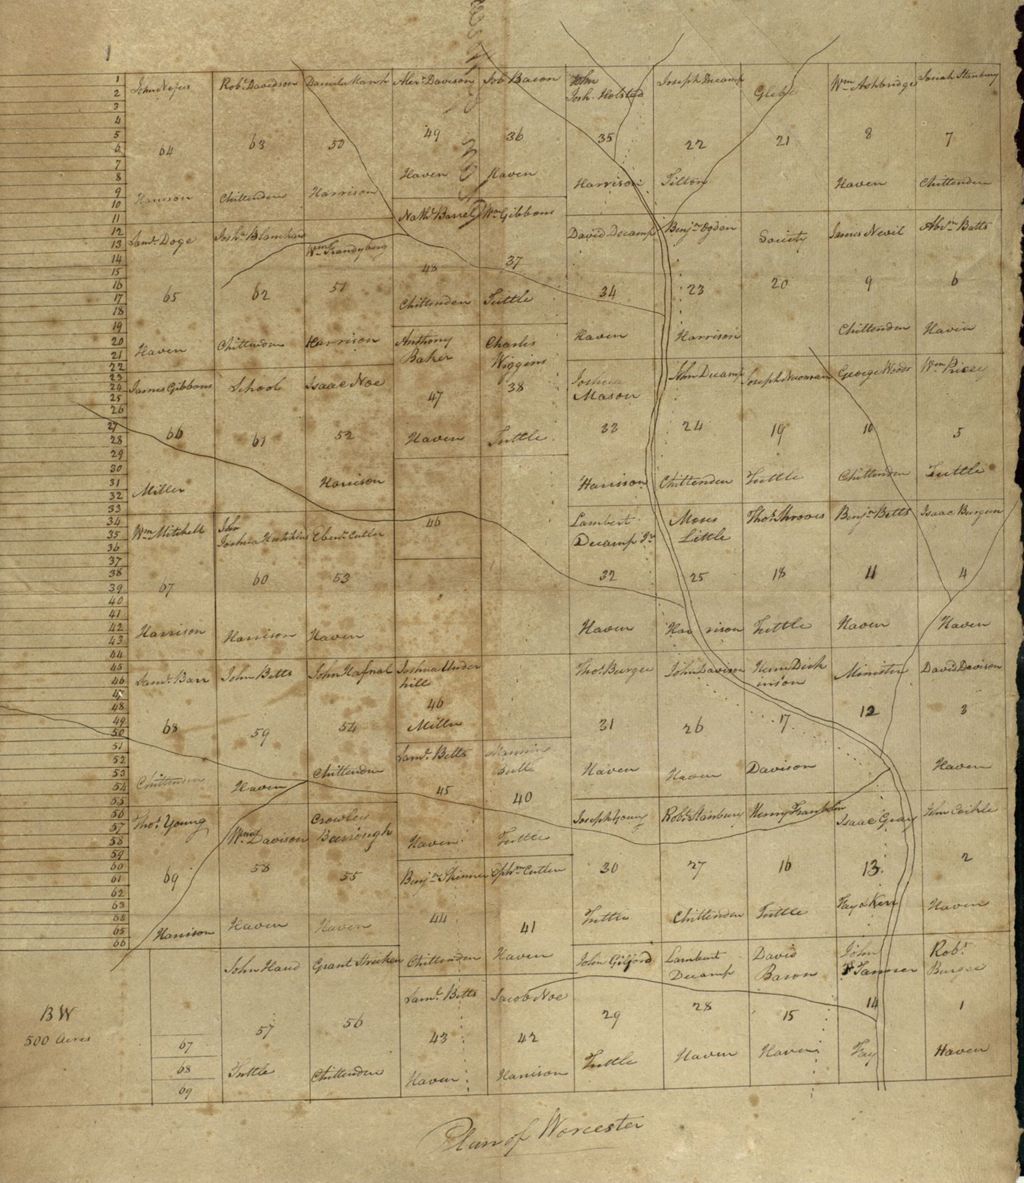 1
2
3
4
5
6
7
8
9
10
11
12
13
14
15
16
17
18
19
20
21
22
23
24
25
26
27
28
29
30
31
32
33
34
35
36
37
38
39
40
41
42
43
44
45
46
47
48
49
50
51
52
53
54
55
56
57
58
59
60
61
62
63
65
66
67
68
69
John
64
Harrison
Robt Davidson
63
Chittenden
Daniel Marsh
50
Harrison
Alexr Davison
49
Haven
Job Bacon
36
Haven
John
Josh. Holsted
35
Harrison
Joseph Decamp
22
Tilton
Glebe
21
Wm Ashbridge
8
Haven
Josiah Stanbury
7
Chittenden
Saml Doge
65
Haven
Joshu Blanchar
62
Chittenden
Wm
51
Harrison
Nathl Barrel
48
Chittenden
Wm Gibbons
37
Tuttle
David Decamp
34
Haven
Benjn Ogden
23
Harrison
Society
20
James Nevil
9
Chittenden
Abrm Batts
6
Haven
James Gibbons
66
Miller
School
61
Isaac Noe
52
Harrison
Anthony
Baker
47
Haven
Charles
Wiggins
38
Tuttle
Joshua
Mason
33
Harrison
John Decamp
24
Chittenden
Joseph
19
Tuttle
George
10
Chittenden
Wm
5
Tuttle
Wm Mitchell
67
Harrison
John
Joshua
60
Harrison
Ebenr Cutler
53
Haven
46
Lambert
Decamp Jr
32
Haven
Moses
Little
25
Harrison
Thos Throops
18
Tuttle
Benjn Betts
11
Haven
Isaac Burgen
4
Haven
Saml Barr
68
Chittenden
John Betts
59
Haven
John Hafnal
54
Chittenden
Joshua Under
hill
46
Miller
Saml Betts
45
Haven
40
Tuttle
Thos Burger
31
Haven
John Davison
26
Haven
Dick
inson
17
Davison
Minister
12
David Davison
3
Haven
Thos Young
69
Harrison
Wm Davison
58
Haven
Crowley
Barrough
55
Haven
Benjn Skinner
44
Chittenden
Ephm Cutler
41
Haven
Joseph Young
30
Tuttle
Robt Stanbury
27
Chittenden
Henry Franklin
16
Tuttle
Isaac Gray
13
Fay & Kerr
John
2
Haven
BW
500 Acres
John Hand
57
Tuttle
Grant
56
Chittenden
Saml Betts
43
Haven
Jacob Noe
42
Harrison
John Gilford
29
Tuttle
Lambert
Decamp
28
Haven
David
Bacon
15
Haven
John
14
Fay
Robt
Burger
1
Haven
Plan of Worcester